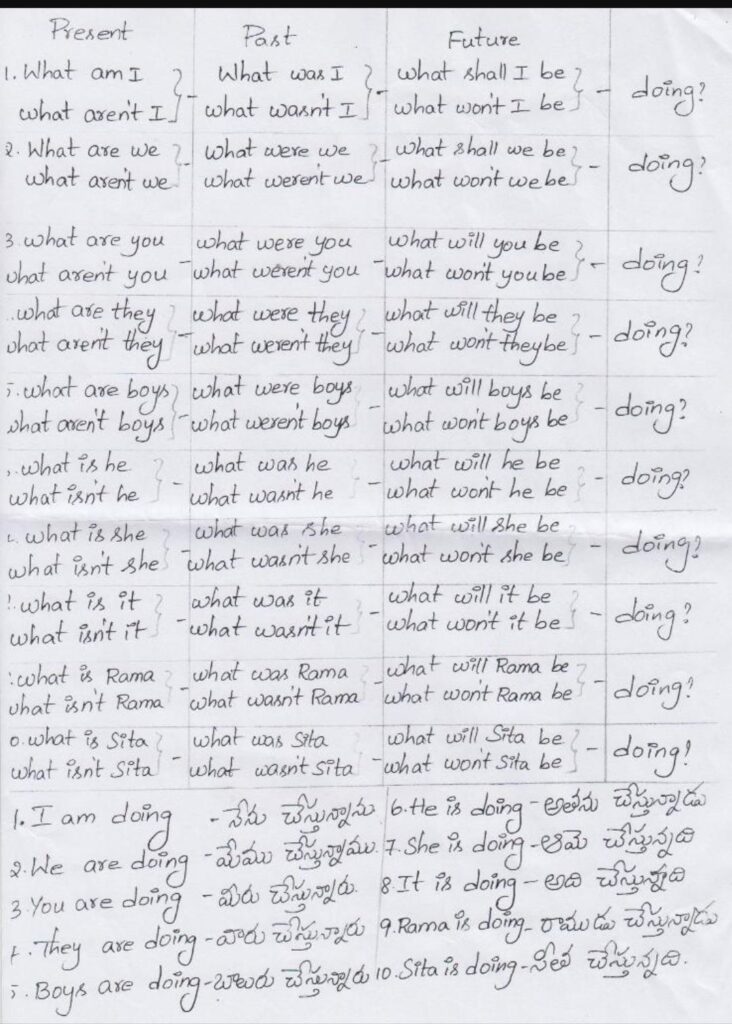 Present Past Future
1. What am I What was I what shall I be
what aren't I - what wasn't I - what won't I be - doing?
2. What are we what were we what shall we be
what aren't we - what weren't we - what won't we be - doing?
3. what are you what were you what will you be
what aren't you - what weren't you - what won't you be - doing?
.what are they what were they what will they be
what aren't they - what weren't they - what won't they be - doing?
5. what are boys what were boys what will boys be
what aren't boys - what weren't boys - what won't boys be - doing?
.what is he what was he what will he be
what isn't he - what wasn't he - what won't he be - doing?
.what is she what was she what will she be
what isn't she - what wasn't she - what won't she be - doing?
.what is it what was it what will it be
what isn't it - what wasn't it - what won't it be - doing?
.what is Rama what was Rama what will Rama be
what isn't Rama - what wasn't Rama - what won't Rama be - doing?
0. what is Sita what was Sita what will Sita be
what isn't Sita - what wasn't Sita - what won't Sita be - doing!
1. I am doing - నేను చేస్తున్నాను 6. He is doing - అతను చేస్తున్నాడు
2. We are doing - మేము చేస్తున్నాము. 7. She is doing - ఆమె చేస్తున్నది
3. You are doing - మీరు చేస్తున్నారు. 8. It is doing - అది చేస్తున్నది
4. They are doing - వారు చేస్తున్నారు 9. Rama is doing - రాముడు చేస్తున్నాడు
5. Boys are doing - బాలురు చేస్తున్నారు 10. Sita is doing - సీత చేస్తున్నది.